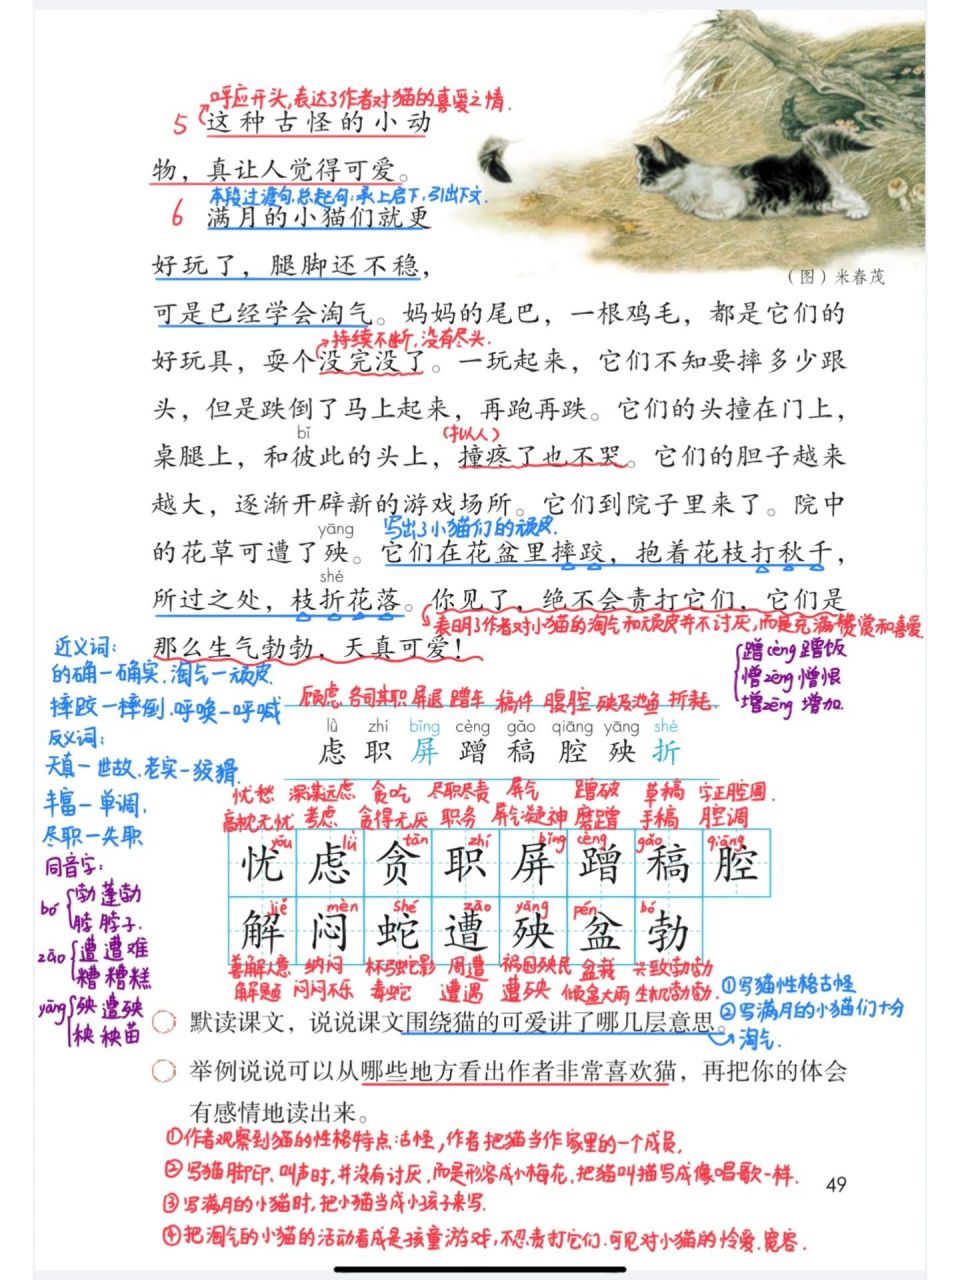 呼应开头,表达了作者对猫的喜爱之情.
5 这种古怪的小动
物，真让人觉得可爱。
本段过渡句,总起句:承上启下,引出下文.
6 满月的小猫们就更
好玩了，腿脚还不稳，
（图）米春茂
可是已经学会淘气。妈妈的尾巴，一根鸡毛，都是它们的
持续不断,没有尽头.
好玩具，耍个没完没了。一玩起来，它们不知要摔多少跟
头，但是跌倒了马上起来，再跑再跌。它们的头撞在门上，
bǐ
(拟人)
桌腿上，和彼此的头上，撞疼了也不哭。它们的胆子越来
越大，逐渐开辟新的游戏场所。它们到院子里来了。院中
yāng
写出了小猫们的顽皮.
的花草可遭了殃。它们在花盆里摔跤，抱着花枝打秋千，
shé
所过之处，枝折花落。你见了，绝不会责打它们，它们是
表明了作者对小猫的淘气和顽皮并不讨厌,而是充满赞赏和喜爱
那么生气勃勃，天真可爱！
近义词:
的确一确实.淘气一顽皮.
摔跤一摔倒.呼唤一呼喊
反义词:
天真一世故.老实一狡猾.
丰富一单调.
尽职一失职
同音字:
bó 勃 蓬勃
脖 脖子.
zāo 遭 遭难
糟 糟糕
yāng 殃 遭殃
秧 秧苗
蹭cèng蹭饭
憎zēng憎恨
增zēng增加.
顾虑 各司其职 屏退 蹭车 稿件 腹腔 殃及池鱼 折耗.
lǜ zhí bǐng cèng gǎo qiāng yāng shé
虑 职 屏 蹭 稿 腔 殃 折
忧愁 深谋远虑 贪吃 尽职尽责 屏气 蹭破 草稿 字正腔圆.
高枕无忧 考虑 贪得无厌 职务 屏气凝神 磨蹭 手稿 腔调
yōu lǜ tān zhí bǐng cèng gǎo qiāng
忧 虑 贪 职 屏 蹭 稿 腔
jiě mèn shé zāo yāng pén bó
解 闷 蛇 遭 殃 盆 勃
善解人意 纳闷 杯弓蛇影 周遭 祸国殃民 盆栽 兴致勃勃
解题 闷闷不乐 毒蛇 遭遇 遭殃 倾盆大雨 生机勃勃.
①写猫性格古怪
②写满月的小猫们十分
淘气.
默读课文，说说课文围绕猫的可爱讲了哪几层意思。
举例说说可以从哪些地方看出作者非常喜欢猫，再把你的体会
有感情地读出来。
①作者观察到猫的性格特点:古怪,作者把猫当作家里的一个成员.
②写猫脚印、叫声时,并没有讨厌,而是形容成小梅花,把猫叫描写成像唱歌一样.
③写满月的小猫时,把小猫当成小孩子来写.
④把淘气的小猫的活动看成是孩童游戏,不忍责打它们.可见对小猫的怜爱.宽容.
49